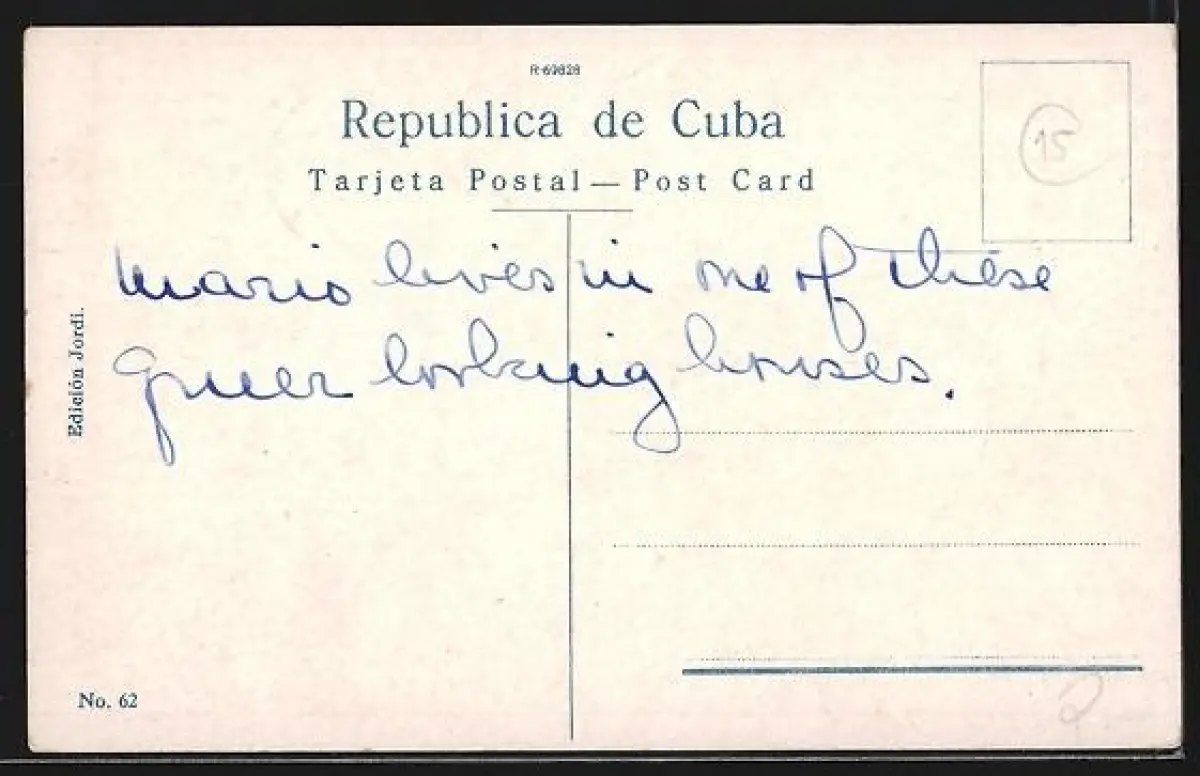 R-69828
Republica de Cuba
Tarjeta Postal — Post Card
15
Mario lives in one of these
queer looking houses.
Edición Jordi.
No. 62